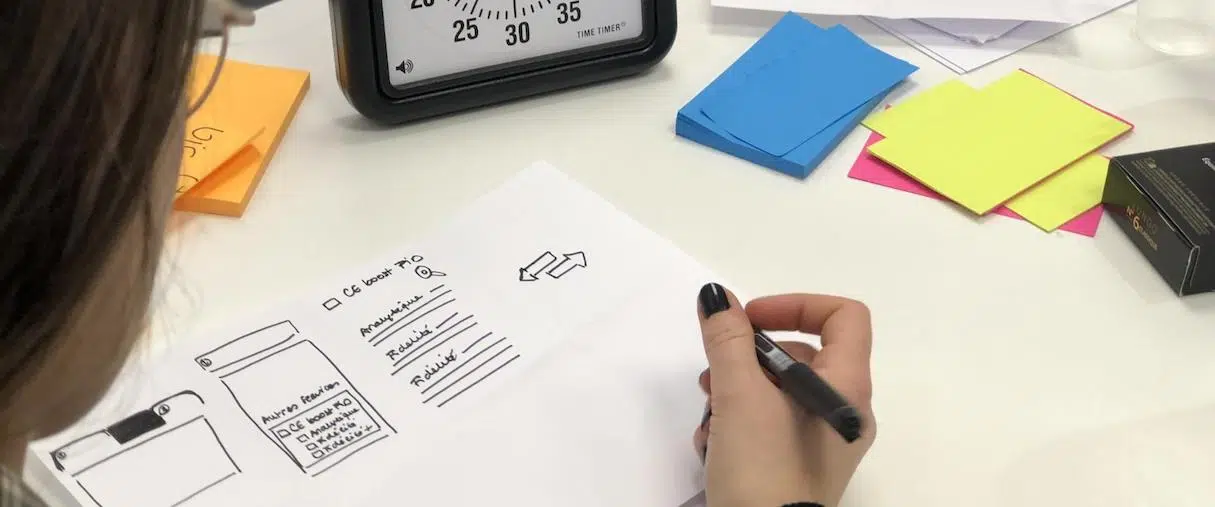 20
25
30
35
TIME TIMER®
CE boost PiO
Analytique
Fidélité
Fidélité
Autres services
CE boost PiO
Analytique
Fidélité
Fidélité +
N°6